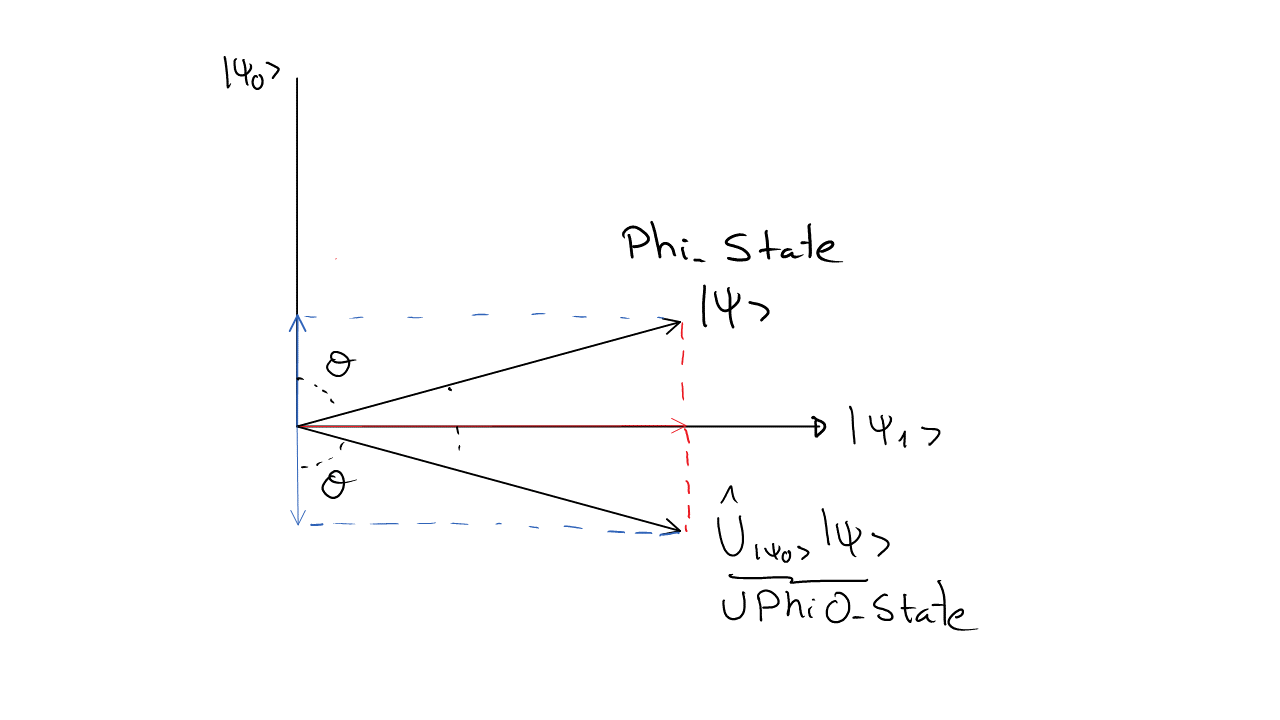 |ψ₀>
Phi_State
|ψ>
θ
|ψ₁>
θ
Û|ψ₀> |ψ>
UPhi0_State